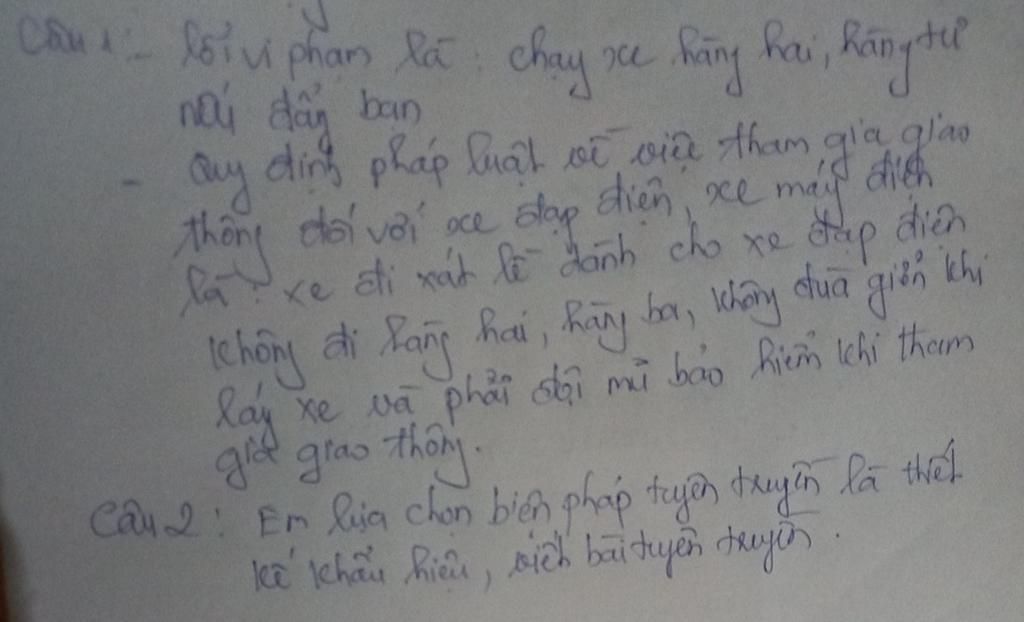 Câu 1: - Lỗi vi phạm là: chạy xe hàng hai, hàng tư
nối đẩy bạn
- Quy định pháp luật về việc tham gia giao
thông đối với xe đạp điện, xe máy điện
là: xe đi xát lề dành cho xe đạp điện
không đi hàng hai, hàng ba, không đùa giỡn khi
láy xe và phải đội mũ bảo hiểm khi tham
gia giao thông.
Câu 2: Em lựa chọn biện pháp tuyên truyền là thiết
kế khẩu hiệu, viết bài tuyên truyền.